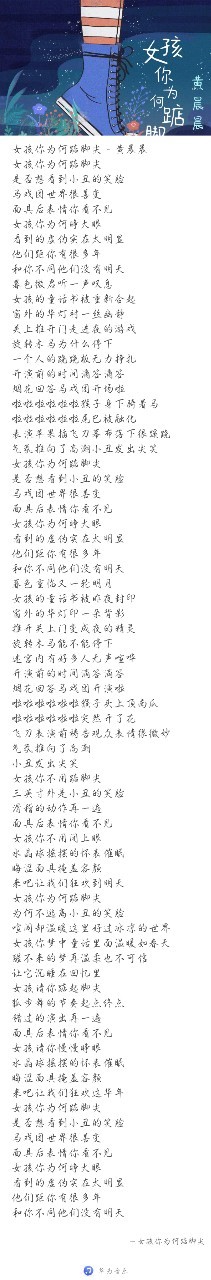 女孩
你为何
踮脚
黄晨晨
女孩你为何踮脚尖 - 黄晨晨
女孩你为何踮脚尖
是否想看到小丑的笑脸
马戏团世界很善变
面具后表情你看不见
女孩你为何睁大眼
看到的虚伪实在太明显
他们距你有很多年
和你不同他们没有明天
暮色微启听一声叹息
女孩的童话书被重新合起
窗外的华灯对一丝幽静
关上推开门走进夜的游戏
旋转木马为什么停下
一个人的跷跷板无力挣扎
开演前的时间滴答滴答
烟花回答马戏团开场啦
啦啦啦啦啦啦猴子身下骑着马
啦啦啦啦啦啦尾巴被融化
表演苹果插飞刀幕布落下很蹊跷
气氛推向了高潮小丑发出尖笑
女孩你为何踮脚尖
是否想看到小丑的笑脸
马戏团世界很善变
面具后表情你看不见
女孩你为何睁大眼
看到的虚伪实在太明显
他们距你有很多年
和你不同他们没有明天
暮色重临又一轮明月
女孩的童话书被昨夜封印
窗外的华灯印一朵背影
推开关上门变成夜的精灵
旋转木马能不能停下
迷宫内有好多人无声喧哗
开演前的时间滴答滴答
烟花回答马戏团开演啦
啦啦啦啦啦啦猴子头上顶南瓜
啦啦啦啦啦啦突然开了花
飞刀表演前祷告观众表情很微妙
气氛推向了高潮
小丑发出尖笑
女孩你不用踮脚尖
三英寸外是小丑的笑脸
滑稽的动作再一遍
面具后表情你看不见
女孩你不用闭上眼
水晶球摇摆的怀表催眠
晦涩面具掩盖容颜
来吧让我们狂欢到明天
女孩你为何踮脚尖
为何不逃离小丑的笑脸
喧闹却温暖这里好过冰凉的世界
女孩你梦中童话里面温暖如春天
碰不来的梦再温柔也不可信
让它沉睡在回忆里
女孩请你踮起脚尖
狐步舞的节奏起点终点
错过的演出再一遍
面具后表情你看不见
女孩请你慢慢睁眼
水晶球摇摆的怀表催眠
晦涩面具掩盖容颜
来吧让我们狂欢这华年
女孩你为何踮脚尖
是否想看到小丑的笑脸
马戏团世界很善变
面具后表情你看不见
女孩你为何睁大眼
看到的虚伪实在太明显
他们距你有很多年
和你不同他们没有明天
—女孩你为何踮脚尖